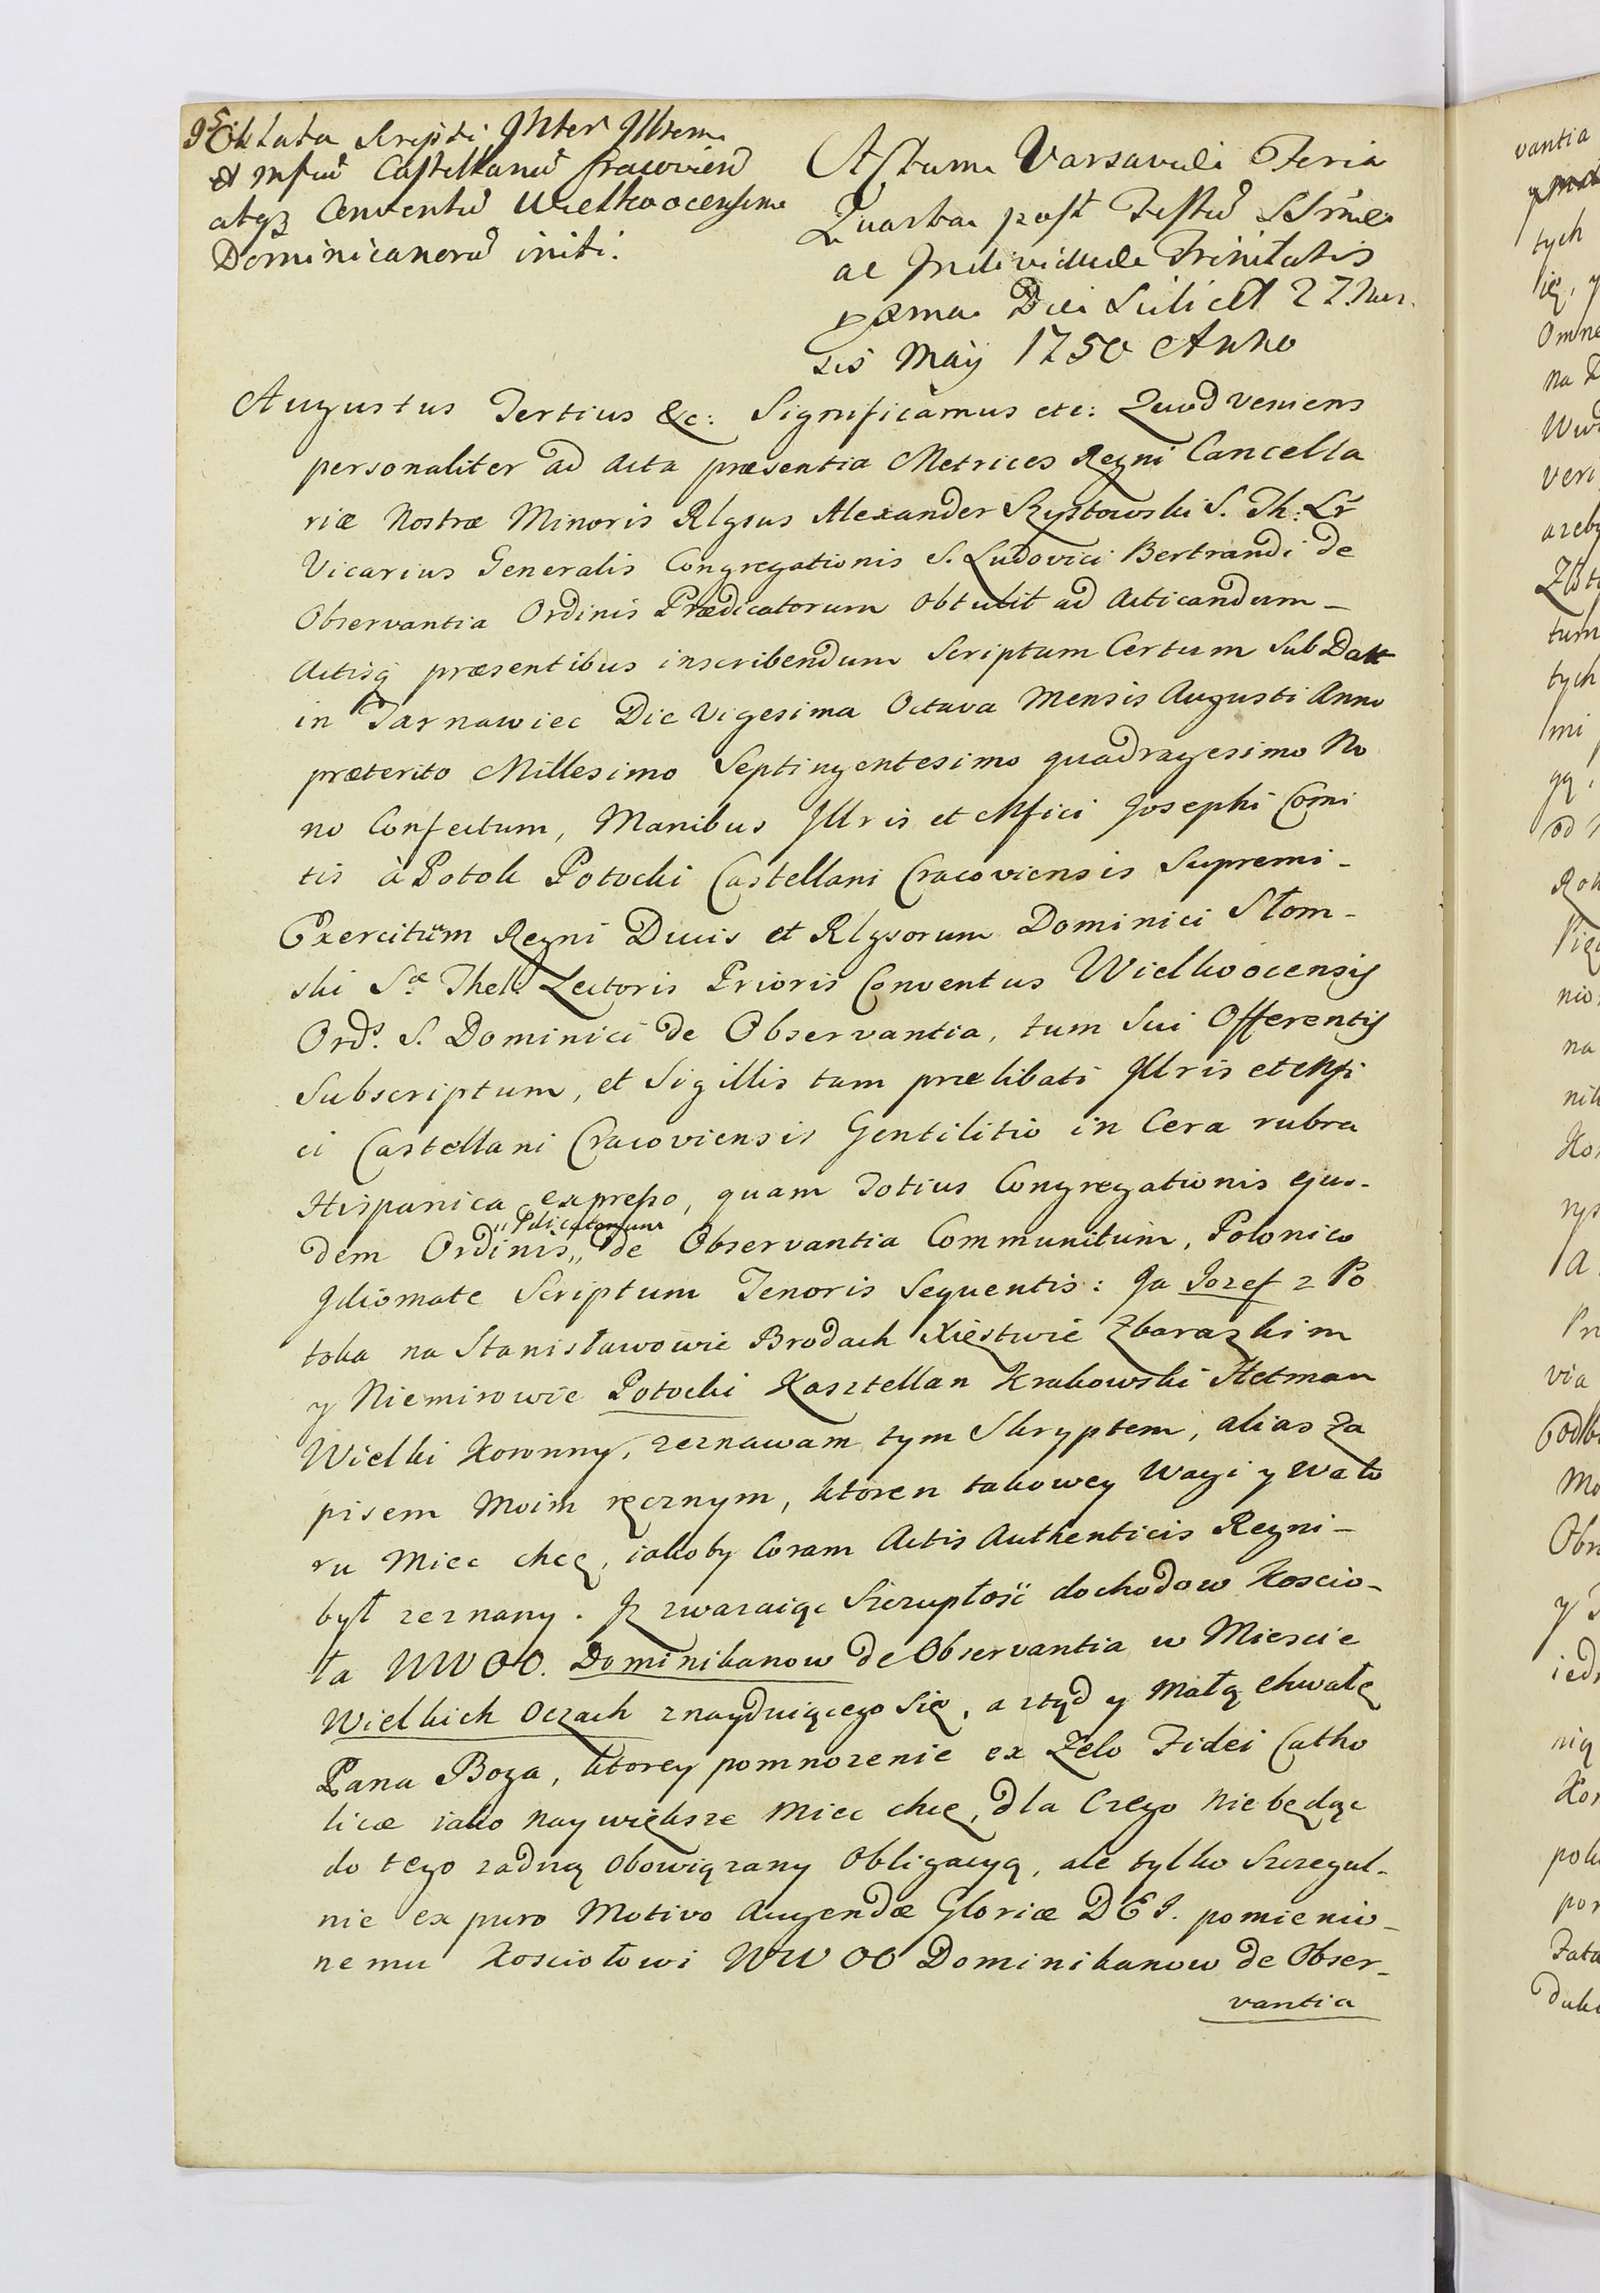 Oblata Scripti Inter Illrem
et Mfcu Castellanu Cracovien
atqz Conventu Wielkoocensem
Dominicanoru initi.
Actum Varsaviæ Feria
Quarta post Festu SSmæ
ac Individuæ Trinitatis
pxma Die Scilicet 27. Men
sis Maÿ 1750 Anno
Augustus Tertius &c: Significamus etc: Quod veniens
personaliter ad Acta præsentia Metrices Regni Cancella
riæ Nostræ Minoris Rlgsus Alexander Szystowski S. Th: Lr
Vicarius Generalis Congregationis S. Ludovici Bertrandi de
Observantia Ordinis Prædicatorum obtulit ad Acticandum -
Actisq præsentibus inscribendum Scriptum Certum Sub Datt
in Tarnawiec Die Vigesima Octava Mensis Augusti Anno
præterito Millesimo Septingentesimo quadragesimo No
no Confectum, Manibus Illris et Mfici Josephi Comi
tis à Potok Potocki Castellani Cracoviensis Supremi -
Exercituum Regni Ducis et Rlgsorum Dominici Słom-
ski Sæ Theb Lectoris Prioris Conventus Wielkoocensis
Ords. S. Dominici de Observantia, tum Sui Offerentis
Subscriptum, et Sigillis tam prælibati Illris et Mfi
ci Castellani Cracoviensis Gentilitio in Cera rubra
Hispanica expresso, quam Totius Congregationis ejus-
dem Ordinis „Pdicatorum„ de Observantia Communitum, Polonico
Idiomate Scriptum Tenoris Sequentis: Ja Jozef z Po
toka na Stanisławowie Brodach Xięstwie Zbarazkim
y Niemirowie Potocki Kasztellan Krakowski Hetman
Wielki Koronny, zeznawam tym Skryptem, alias Za
pisem Moim ręcznym, ktoren takowey Wagi y Walo
ru Miec chcę, iakoby Coram Actis Authenticis Regni -
był zeznany. Iz zwazaiąc Szczupłość dochodow Koscio-
ła WWOO. Dominikanow de Observantia w Miescie
Wielkich Oczach znayduiącego Się, a ztąd y Małą chwałę
Pana Boga, ktorey pomnozenie ex Zelo Fidei Catho
licæ iako naywiększe Miec chcę, dla Czego niebędąc
do tego zadną obowiązany Obligacyą, ale tylko Szczegul-
nie ex puro Motivo Augendæ Gloriæ DEI. pomienio-
nemu Kosciołowi WW OO Dominikanow de Obser-
vantia